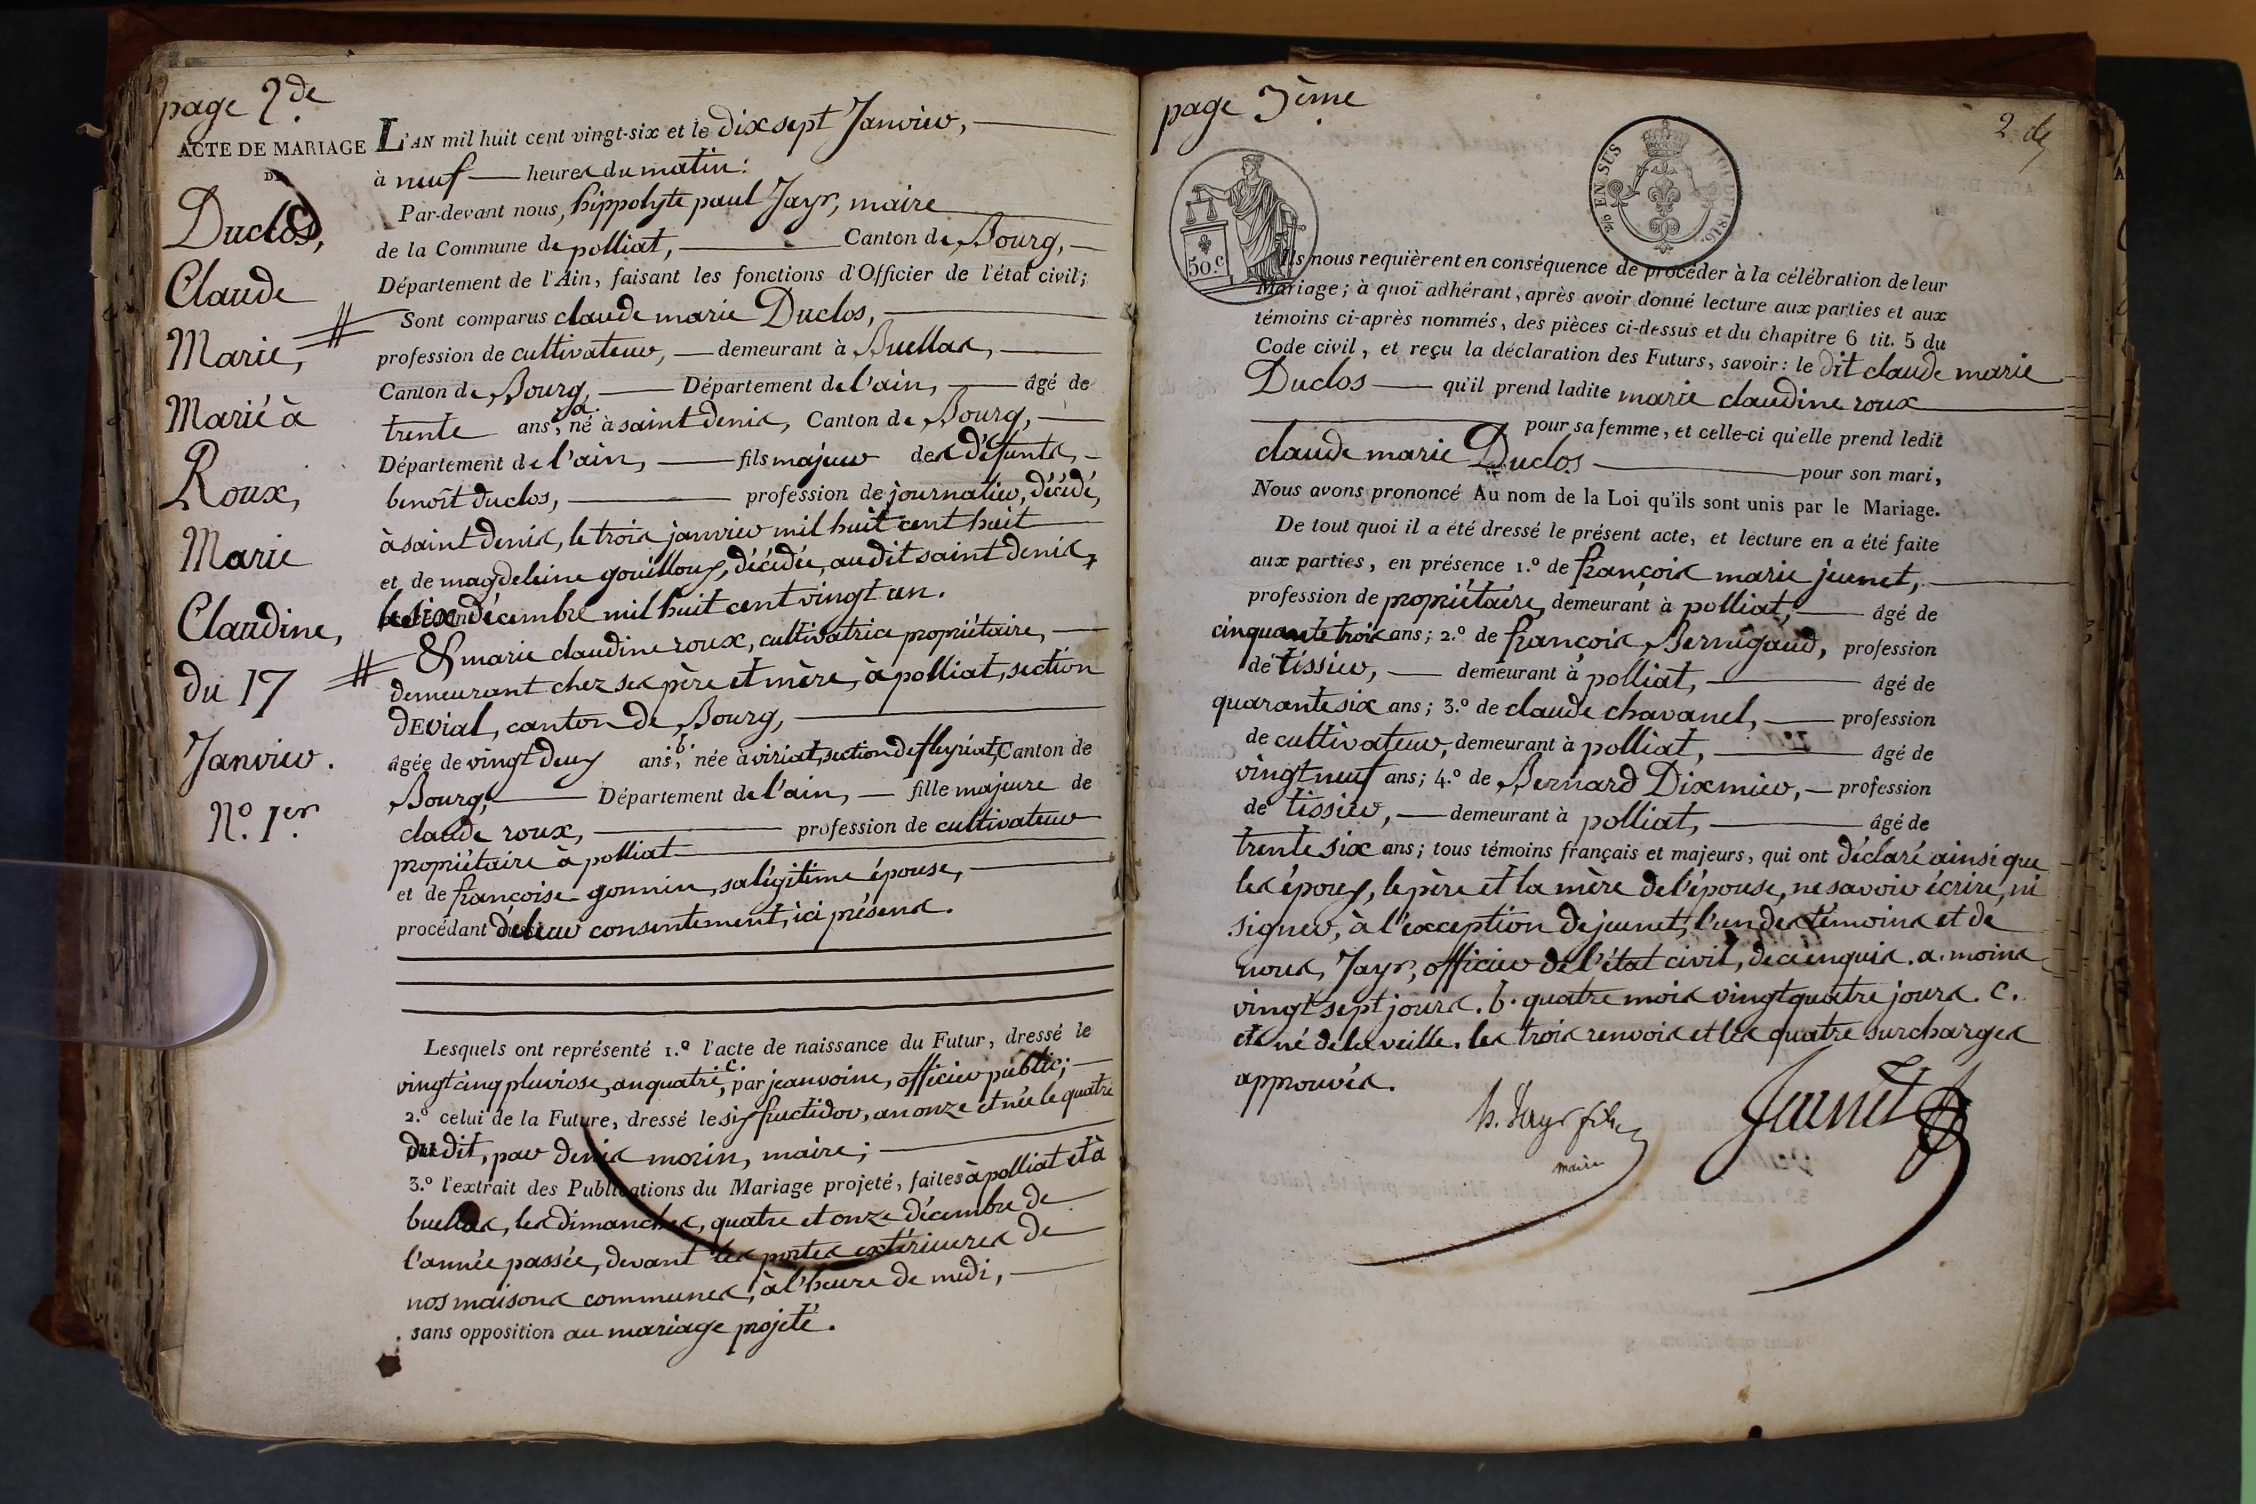 page 2de
ACTE DE MARIAGE
DE
Duclos,
Claude
Marie,
Marié à
Roux,
Marie
Claudine,
du 17
Janvier.
N.o 1er
L'AN mil huit cent vingt-six et le dix sept Janvier,
à neuf heures du matin.
Par-devant nous, hippolyte paul Jayr, maire
de la Commune de polliat, Canton de Bourg,
Département de l'Ain, faisant les fonctions d'Officier de l'état civil;
Sont comparus claude marie Duclos,
profession de cultivateur, demeurant à Buellas,
Canton de Bourg, Département de l'ain, âgé de
trente ans a., né à saint denis, Canton de Bourg,
Département de l'ain, fils majeur des défunts,
benoît duclos, profession de journalier, décédé,
à saint denis, le trois janvier mil huit cent huit
et de magdeleine gouilloux, décédée, audit saint denis,
le six décembre mil huit cent vingt un.
Et marie claudine roux, cultivatrice propriétaire,
demeurant chez ses père et mère, à polliat, section
de vial, canton de Bourg,
âgée de vingt deux ans b., née à viriat, section de fleyriat, Canton de
Bourg, Département de l'ain, fille majeure de
claude roux, profession de cultivateur
propriétaire à polliat
et de françoise gonnin, sa légitime épouse,
procédant de leur consentement, ici présens.
Lesquels ont représenté 1.o l'acte de naissance du Futur, dressé le
vingt cinq pluviose, an quatre, c. par jean voine, officier public;
2.o celui de la Future, dressé le six fructidor, an onze et née le quatre
du dit, par denis morin, maire;
3.o l'extrait des Publications du Mariage projeté, faites à polliat et à
buellas, les dimanches, quatre et onze décembre de
l'année passée, devant les portes extérieures de
nos maisons communes, à l'heure de midi,
sans opposition au mariage projeté.
page 3ème
2. de
50.c
2/10 EN SUS
LOI DE 1816.
Ils nous requièrent en conséquence de procéder à la célébration de leur
Mariage; à quoi adhérant, après avoir donné lecture aux parties et aux
témoins ci-après nommés, des pièces ci-dessus et du chapitre 6 tit. 5 du
Code civil, et reçu la déclaration des Futurs, savoir: le dit claude marie
Duclos qu'il prend ladite marie claudine roux
pour sa femme, et celle-ci qu'elle prend ledit
claude marie Duclos pour son mari,
Nous avons prononcé Au nom de la Loi qu'ils sont unis par le Mariage.
De tout quoi il a été dressé le présent acte, et lecture en a été faite
aux parties, en présence 1.o de françois marie jeunet,
profession de propriétaire, demeurant à polliat, âgé de
cinquante trois ans; 2.o de françois Bernigaud, profession
de tissier, demeurant à polliat, âgé de
quarante six ans; 3.o de claude chavanel, profession
de cultivateur, demeurant à polliat, âgé de
vingt neuf ans; 4.o de Bernard Dixmier, profession
de tissier, demeurant à polliat, âgé de
trente six ans; tous témoins français et majeurs, qui ont déclaré ainsi que
les époux, le père et la mère de l'épouse, ne savoir écrire, ni
signer, à l'exception de jeunet, l'un des témoins et de
nous, Jayr, officier de l'état civil, de ce enquis. a. moins
vingt sept jours. b. quatre mois vingt quatre jours. c.
et né de la veille. les trois renvois et les quatre surcharges
approuvés.
h. Jayr fils
maire
Jeunet